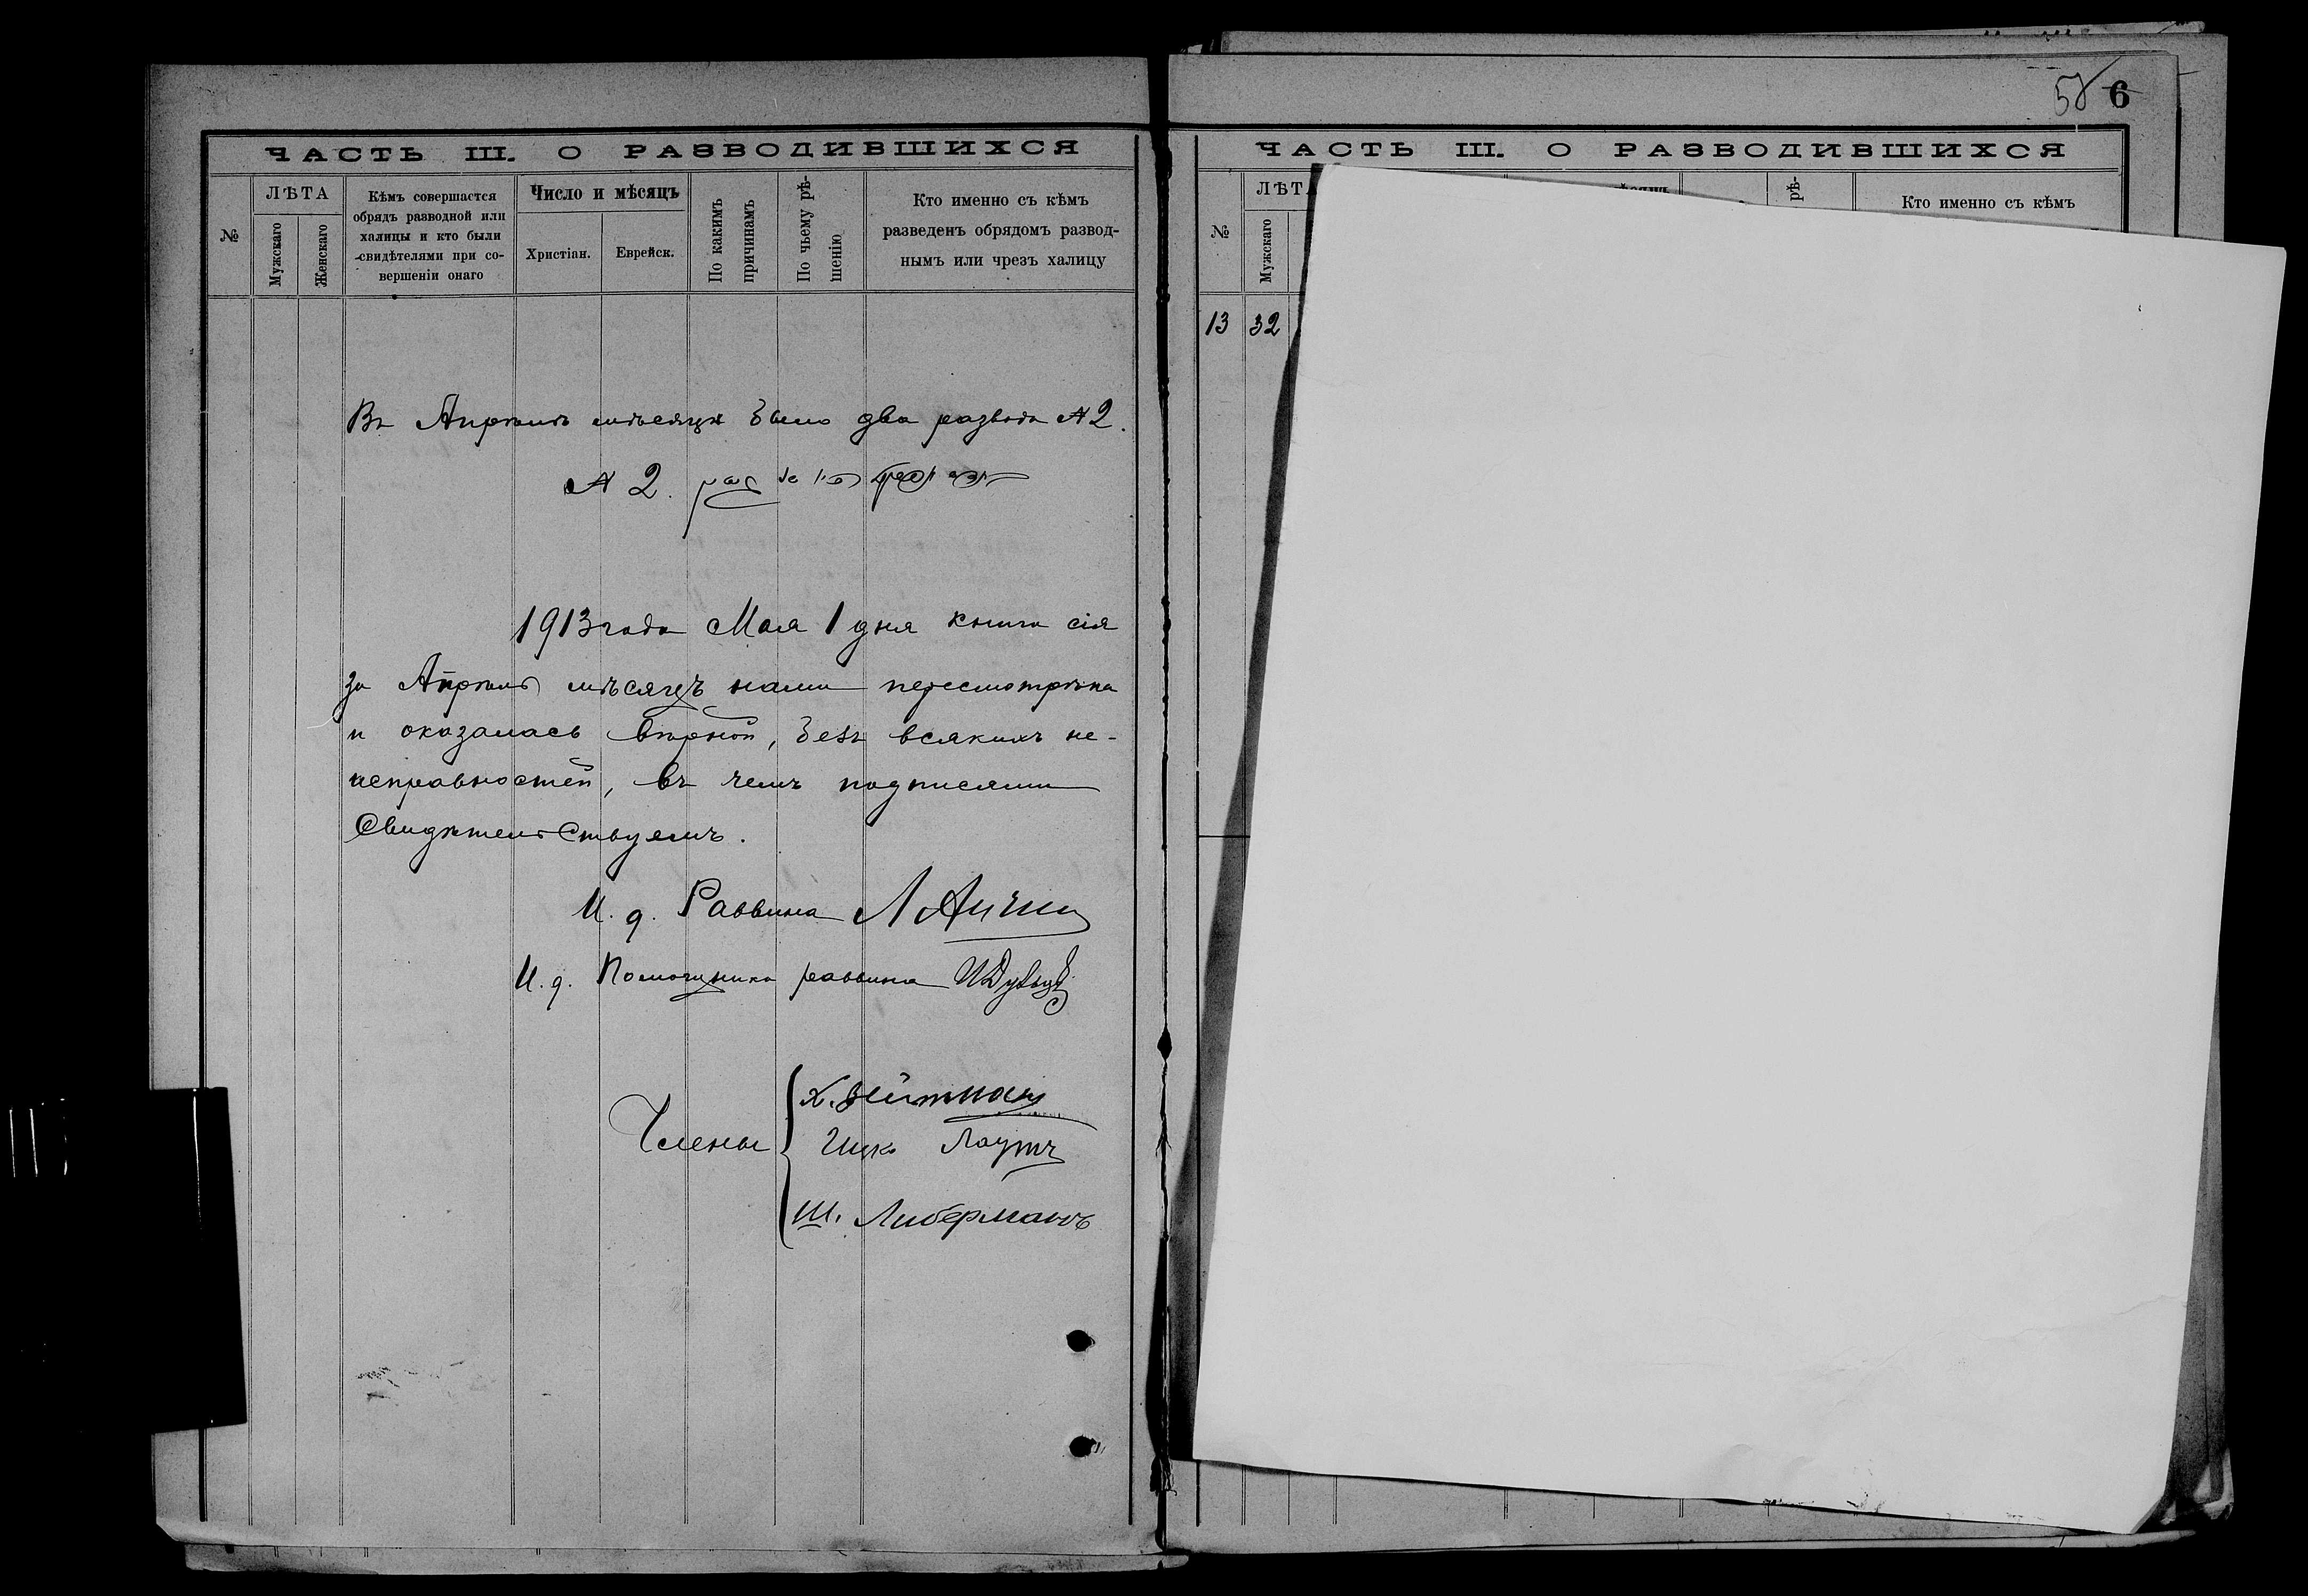 ЧАСТЬ III. О РАЗВОДИВШИХСЯ
№
ЛѢТА
Мужскаго
Женскаго
Кѣмъ совершается
обрядъ разводной или
халицы и кто были
свидѣтелями при со-
вершеніи онаго
Число и мѣсяцъ
Христіан.
Еврейск.
По какимъ
причинамъ
По чьему рѣ-
шенію
Кто именно съ кѣмъ
разведенъ обрядомъ развод-
нымъ или чрезъ халицу
Въ Апрѣлѣ мѣсяцѣ было два развода № 2.
№ 2.
1913 года Мая 1 дня книга сія
за Апрѣль мѣсяцъ нами пересмотрѣна
и оказалась вѣрной, безъ всякихъ не-
исправностей, въ чемъ подписями
Свидѣтельствуемъ.
И. д. Раввина Л
И. д. Помощника раввина
Члены
Х. Вейтман
Ицко Лаутъ
Ш. Либерманъ
58 6
ЧАСТЬ III. О РАЗВОДИВШИХСЯ
№
ЛѢТ
Мужскаго
рѣ-
Кто именно съ кѣмъ
13 32